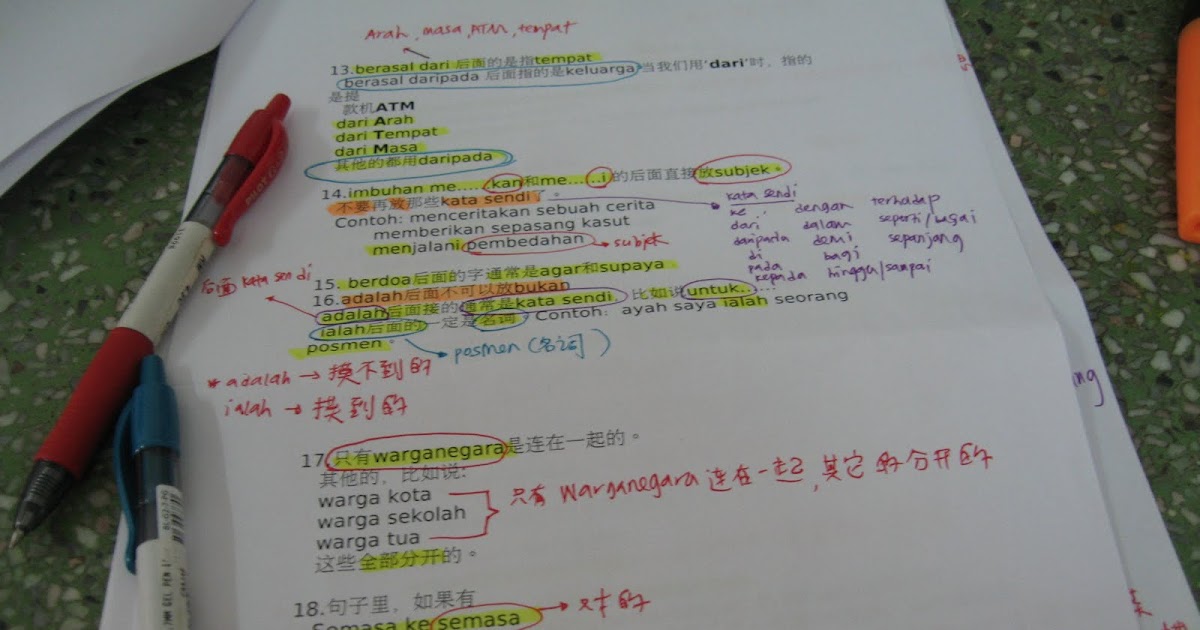 Arah, masa, ATM, tempat
13.berasal dari 后面的是指tempat
berasal daripada 后面指的是keluarga 当我们用‘dari’时，指的
是提
款机ATM
dari Arah
dari Tempat
dari Masa
其他的都用daripada
14.imbuhan me......kan和me......i的后面直接放subjek。
不要再放那些kata sendi了。
Contoh: menceritakan sebuah cerita
memberikan sepasang kasut
menjalani pembedahan
subjek
kata sendi
ke dengan terhadap
dari dalam seperti/bagai
daripada demi sepanjang
di bagi
pada
kepada hingga/sampai
15. berdoa后面的字通常是agar和supaya
后面 kata sendi
16.adalah后面不可以放bukan
adalah后面接的通常是kata sendi 比如说untuk.....
ialah后面的一定是名词 Contoh: ayah saya ialah seorang
posmen。
posmen (名词)
* adalah → 摸不到的
ialah → 摸到的
17.只有warganegara是连在一起的。
其他的，比如说:
warga kota
warga sekolah
warga tua
只有 warganegara 连在一起, 其它的分开的
这些全部分开的。
18.句子里，如果有
Semasa ke semasa
对的
ing